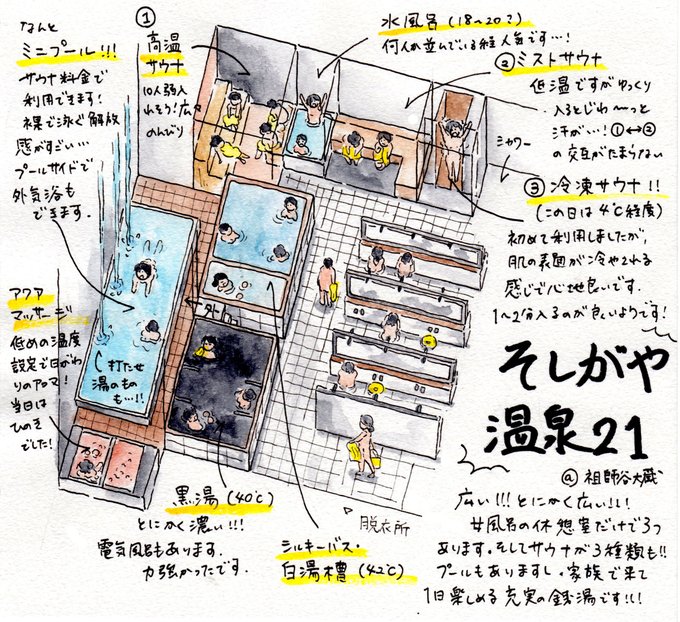 なんと
ミニプール!!!
サウナ料金で
利用できます!
裸で泳ぐ解放
感がすごい…
プールサイドで
外気浴も
できます.
①
高温
サウナ
10人弱入
れそう!広々
のんびり
水風呂(18~20℃)
何人か並んでいる程人気です…!
②ミストサウナ
低温ですがゆっくり
入るとじわ~~っと
汗が…!①↔②
の交互がたまらない
シャワー
③冷凍サウナ!!
(この日は4℃程度)
初めて利用しましたが,
肌の表面が冷やされる
感じで心地良いです.
1~2分入るのが良いようです!
アクア
マッサージ
低めの温度
設定で日がわ
りのアロマ!
当日は
ひのき
でした!
打たせ
湯のもの
も…!!
外
そしがや
温泉21
@祖師谷大蔵
広い!!!とにかく広い!!!
女風呂の休憩室だけで3つ
あります。そしてサウナが3種類も!!
プールもありますし、家族で来て
1日楽しめる充実の銭湯です!!!
黒湯(40℃)
とにかく濃い!!!
電気風呂もあります.
力強かったです.
シルキーバス・
白湯槽(42℃)
脱衣所